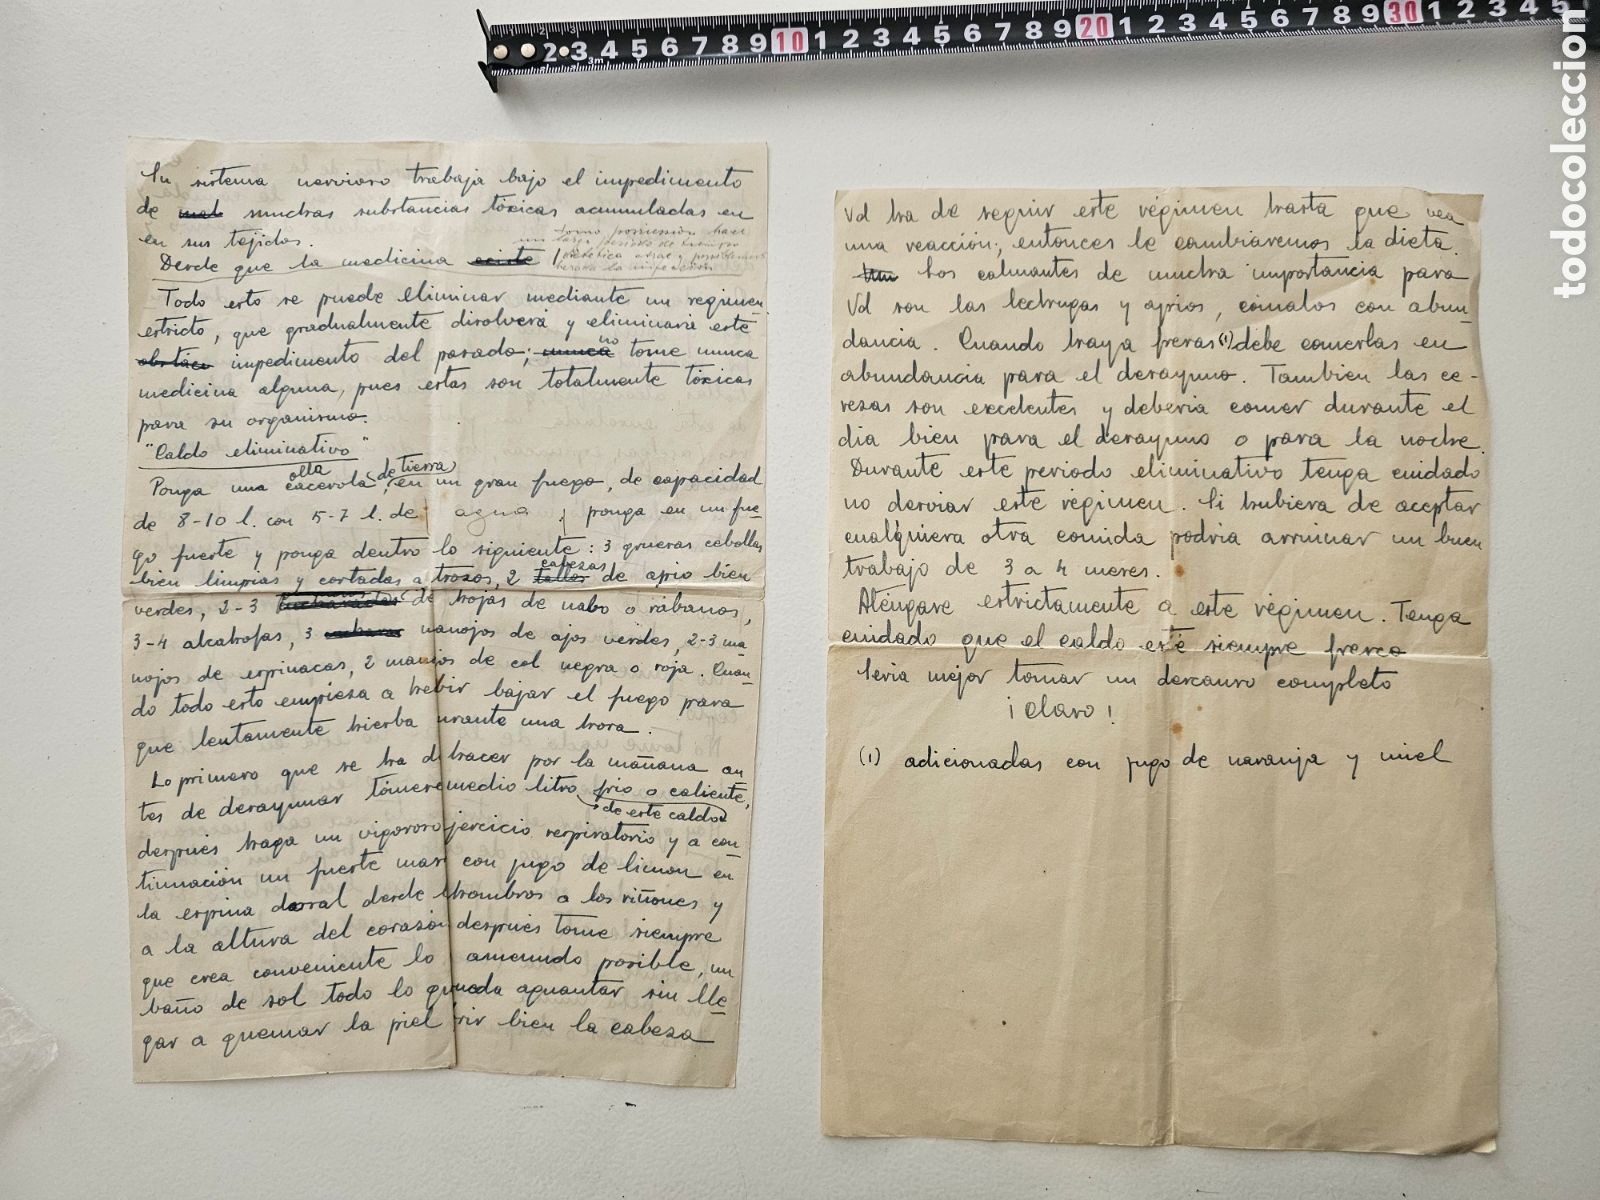 Su sistema nervioso trabaja bajo el impedimento
de muchas substancias tóxicas acumuladas en
en sus tejidos.
Desde que la medicina
Todo esto se puede eliminar mediante un regimen
estricto, que gradualmente disolverá y eliminará este
impedimento del pasado; no tome nunca
medicina alguna, pues estas son totalmente tóxicas
para su organismo.
"Caldo eliminativo"
olla de tierra
Ponga una cacerola, en un gran fuego, de capacidad
de 8-10 l. con 5-7 l. de agua y ponga en un fue-
go fuerte y ponga dentro lo siguiente: 3 gruesas cebollas
bien limpias y cortadas a trozos, 2 tallos cabezas de apio bien
verdes, 2-3 de hojas de nabo o rábanos,
3-4 alcachofas, 3 manojos de ajos verdes, 2-3 ma-
nojos de espinacas, 2 manojos de col negra o roja. Cuan-
do todo esto empieza a hebir bajar el fuego para
que lentamente hierba urante una hora.
Lo primero que se ha d hacer por la mañana an
tes de desayunar tómese medio litro frio o caliente,
de este caldo
después haga un vigoroso jercicio respiratorio y a con
tinuación un fuerte mas con jugo de limon en
la espina dorsal desde hombros a los riñones y
a la altura del corazón después tome siempre
que crea conveniente lo amenudo posible, un
baño de sol todo lo q pueda aguantar sin lle
gar a quemar la piel rir bien la cabeza
Vd ha de seguir este régimen hasta que vea
una reacción; entonces le cambiaremos la dieta.
Los calmantes de mucha importancia para
Vd son las lechugas y apios, cómalos con abun-
dancia. Cuando haya fresas (1) debe comerlas en
abundancia para el desayuno. Tambien las ce-
rezas son excelentes y deberia comer durante el
dia bien para el desayuno o para la noche.
Durante este periodo eliminativo tenga cuidado
no desviar este régimen. Si hubiera de aceptar
cualquiera otra comida podria arruinar un buen
trabajo de 3 a 4 meses.
Aténgase estrictamente a este régimen. Tenga
cuidado que el caldo esté siempre fresco
Seria mejor tomar un descanso completo
¡Claro!
(1) adicionadas con jugo de naranja y miel
1 2 3 4 5 6 7 8 9 10 1 2 3 4 5 6 7 8 9 20 1 2 3 4 5 6 7 8 9 30 1 2 3 4 5
3m
todocoleccion